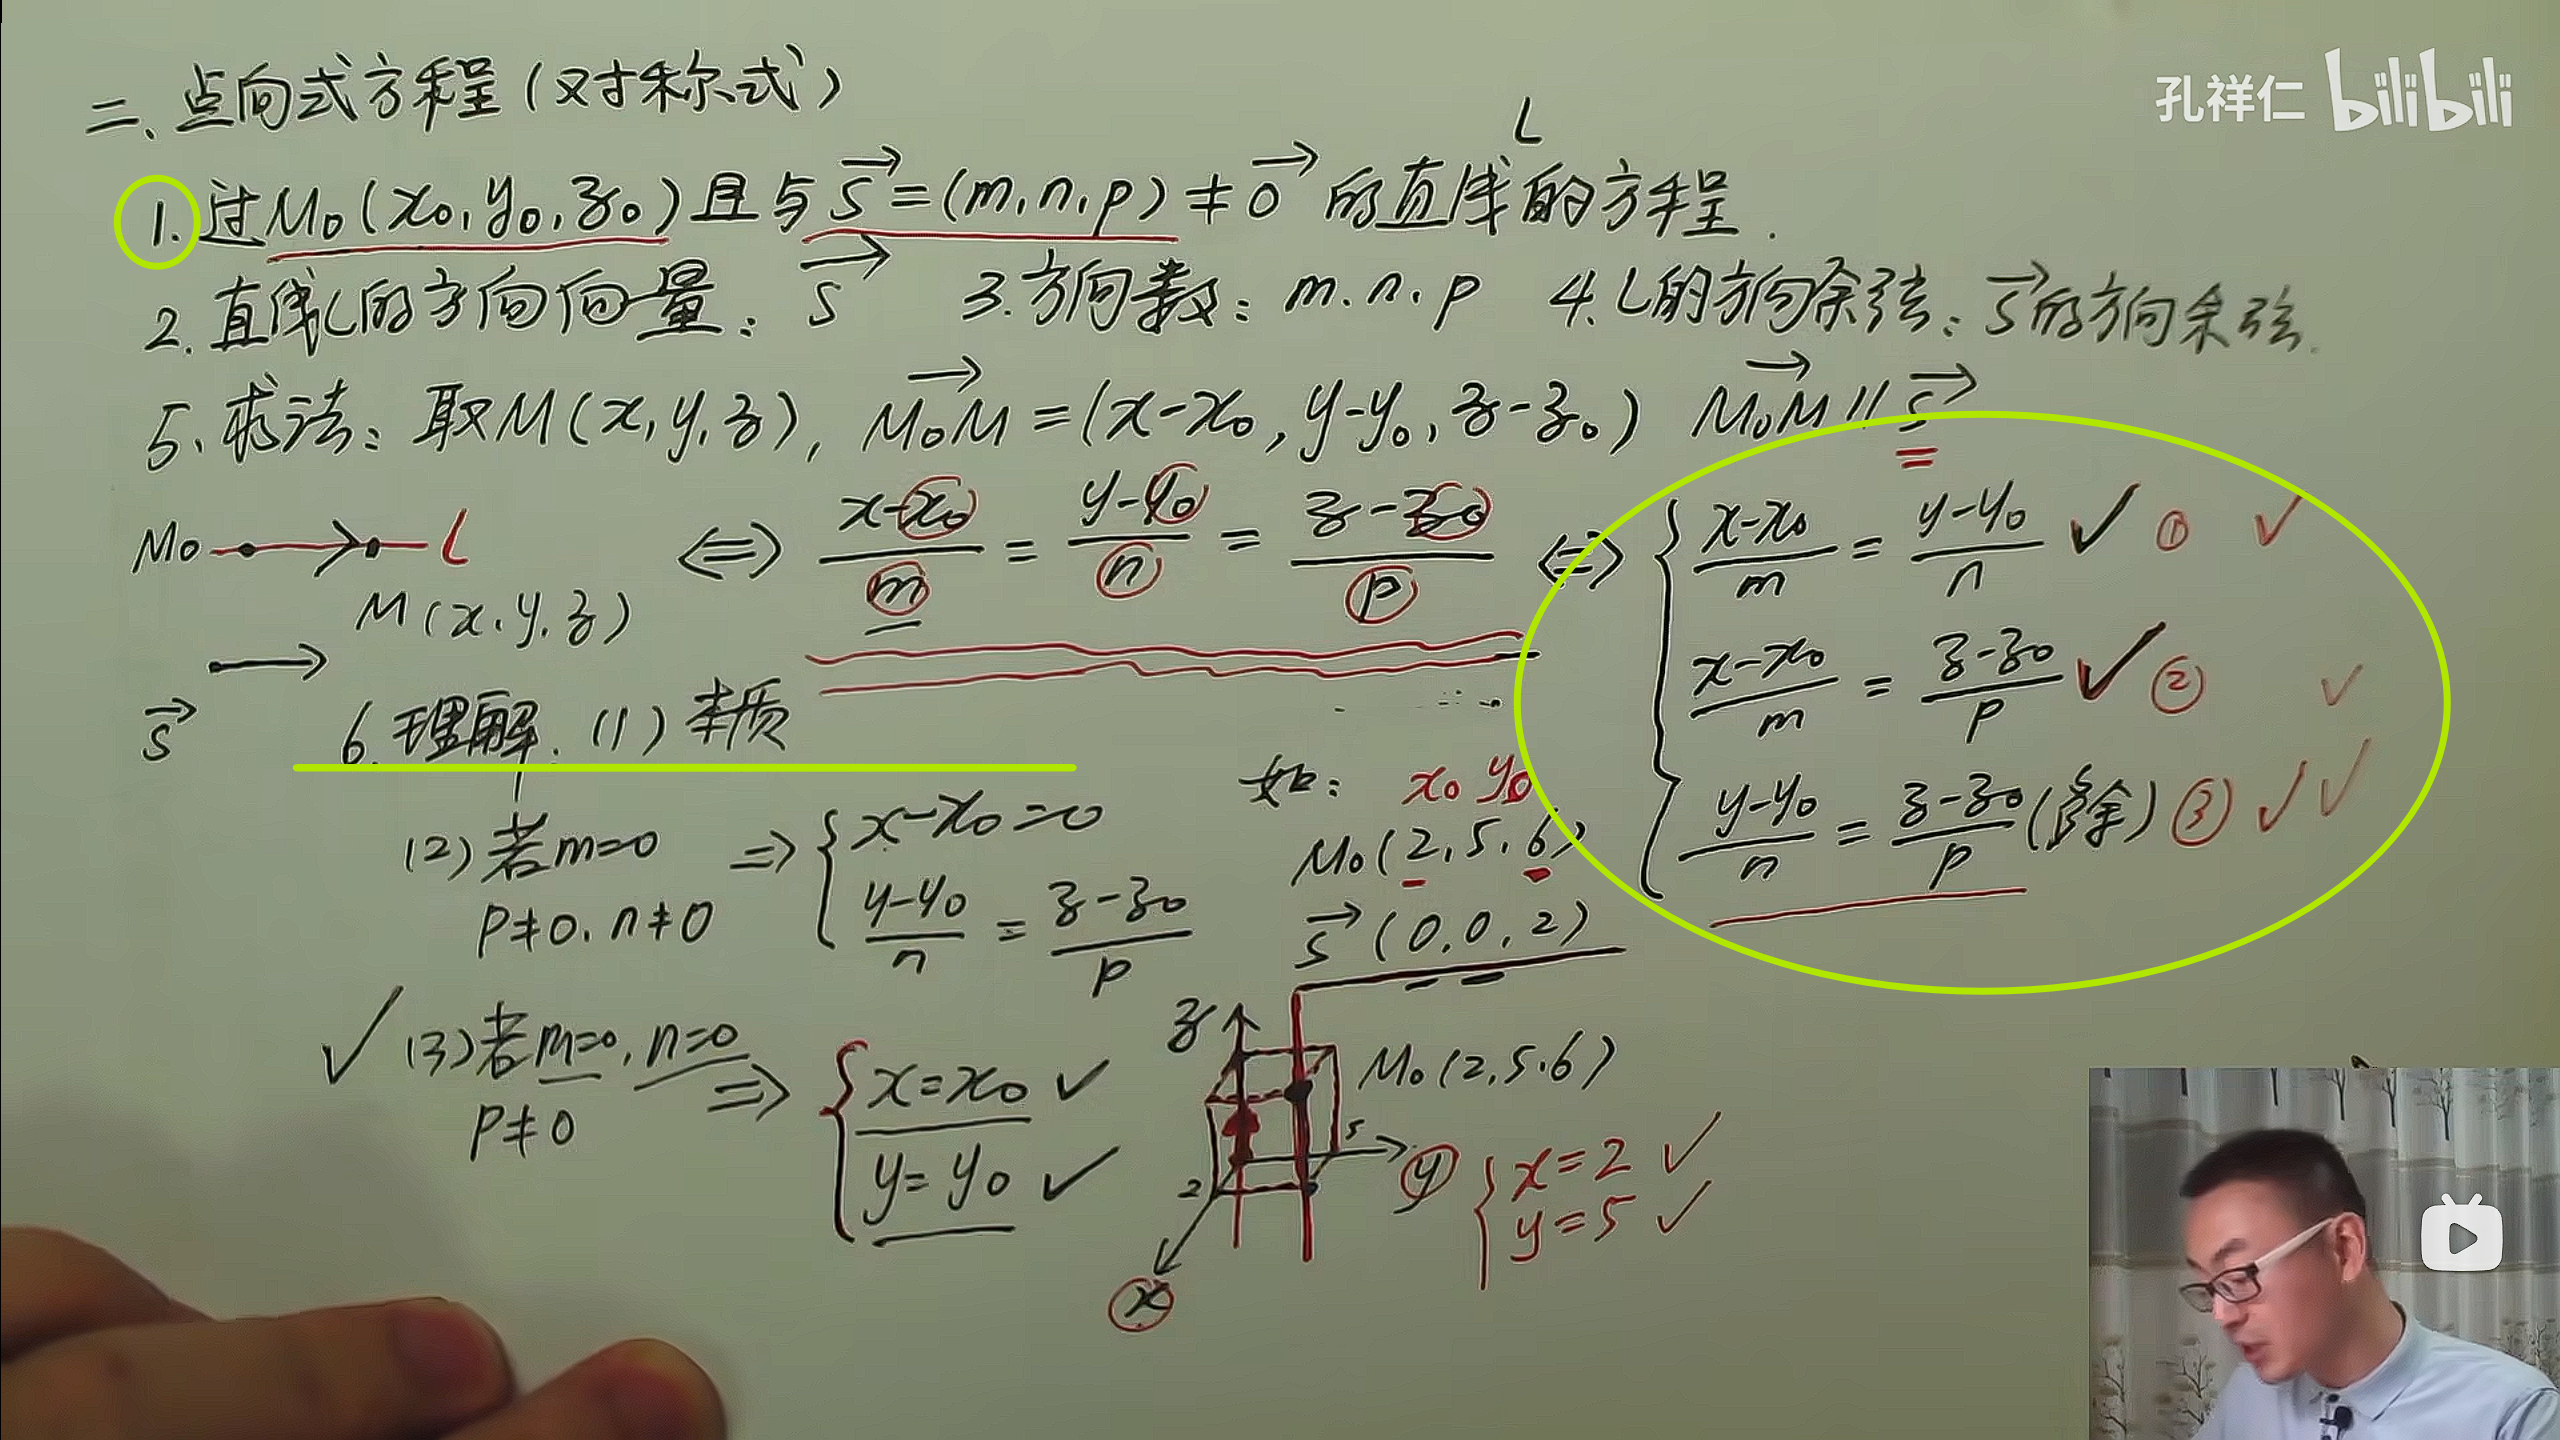 孔祥仁 bilibili
二、点向式方程(对称式)
L
1. 过M₀(x₀,y₀,z₀)且与s⃗=(m,n,p)≠0⃗ 的直线的方程.
2. 直线L的方向向量: s⃗ 3.方向数: m.n.p 4. L的方向余弦: s⃗的方向余弦.
5. 求法: 取M(x,y,z), M₀M⃗=(x-x₀,y-y₀,z-z₀) M₀M⃗∥s⃗
M₀ L
M(x,y,z)
s⃗
⇔ (x-x₀)/m = (y-y₀)/n = (z-z₀)/p ⇔ {
(x-x₀)/m = (y-y₀)/n ✓ ① ✓
(x-x₀)/m = (z-z₀)/p ✓ ② ✓
(y-y₀)/n = (z-z₀)/p (多余) ③ ✓✓
6. 理解: (1) 本质
(2) 若m=0
p≠0, n≠0
⇒ { x-x₀=0
(y-y₀)/n = (z-z₀)/p
✓ (3) 若m=0, n=0
p≠0
⇒ { x=x₀ ✓
y=y₀ ✓
如: x₀ y₀
M₀(2,5,6)
s⃗(0,0,2)
z
M₀(2,5,6)
5
y
2
x
{ x=2 ✓
y=5 ✓